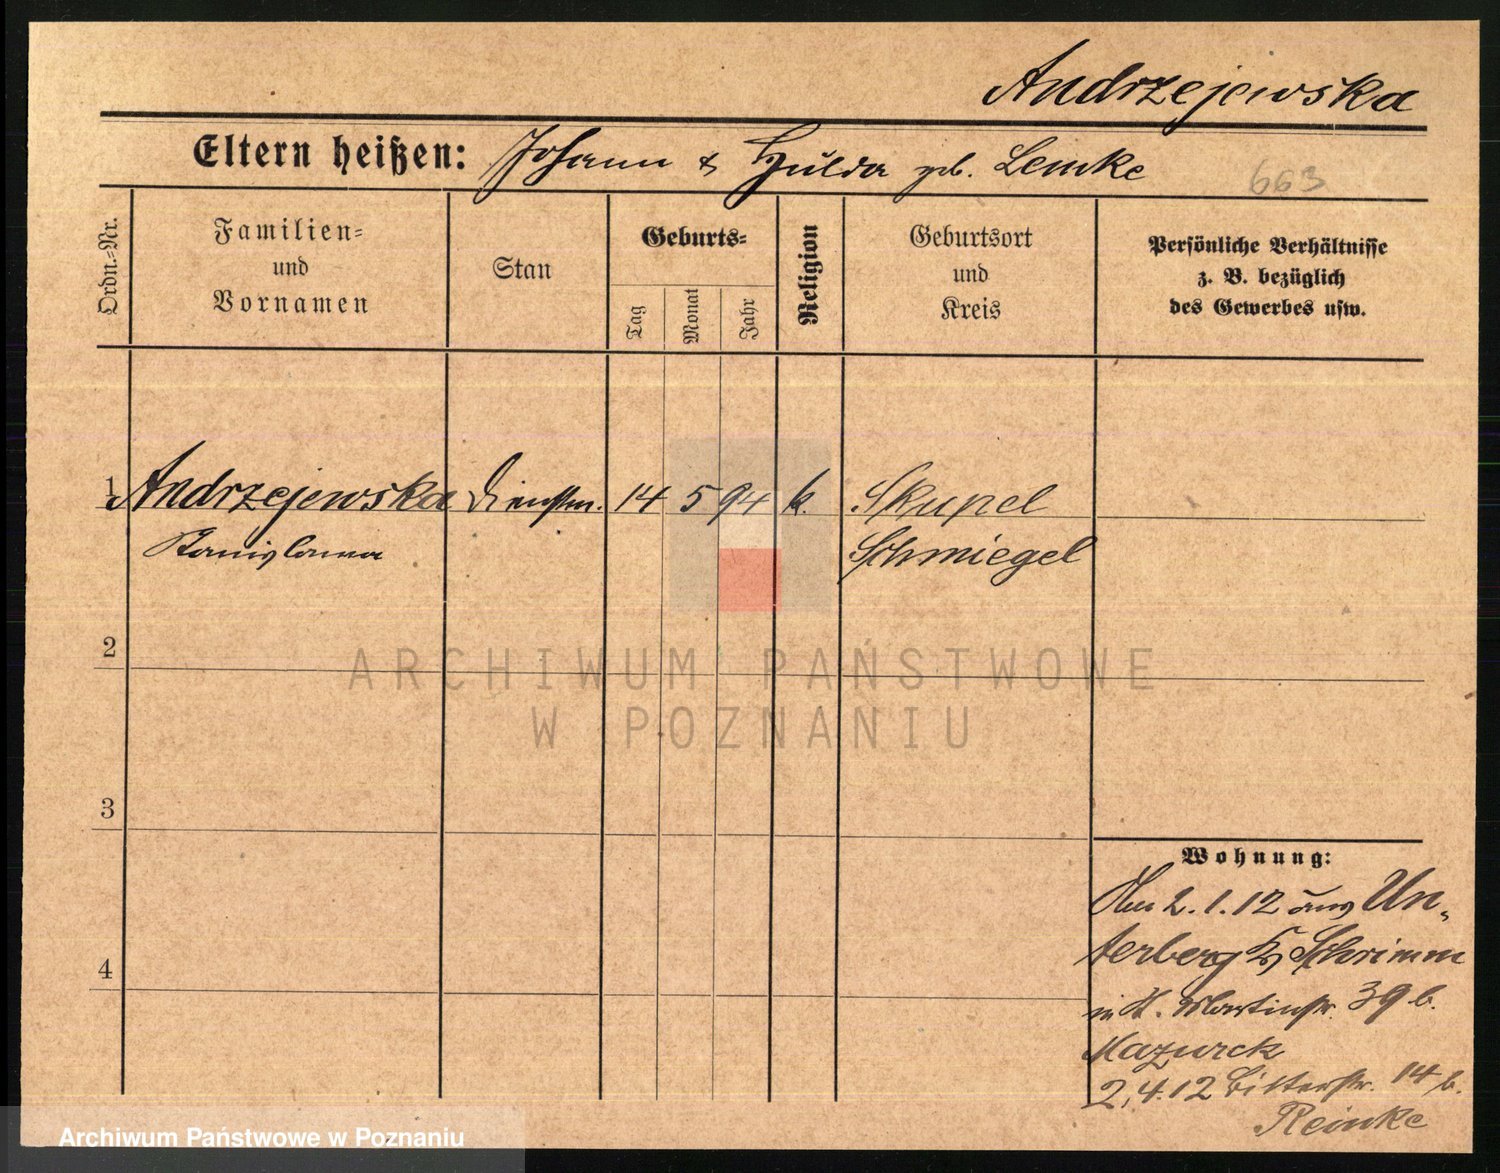 Andrzejewska
Eltern heißen: Johann & Hulda geb. Lemke
663
Ordn.-Nr.
Familien-
und
Vornamen
Stan
Geburts-
Tag
Monat
Jahr
Religion
Geburtsort
und
Kreis
Persönliche Verhältnisse
z. B. bezüglich
des Gewerbes usw.
1 Andrzejewska Dienstm. 14 5 94 k. Skupel
Stanislawa Schmiegel
2
3
4
Wohnung:
Am 2.1.12 aus Un-
terberg Kr. Schrimm
in St. Martinstr. 39 b.
Mazurek
2.4.12 Ritterstr. 14 b.
Reinke
ARCHIWUM PAŃSTWOWE
W POZNANIU
Archiwum Państwowe w Poznaniu